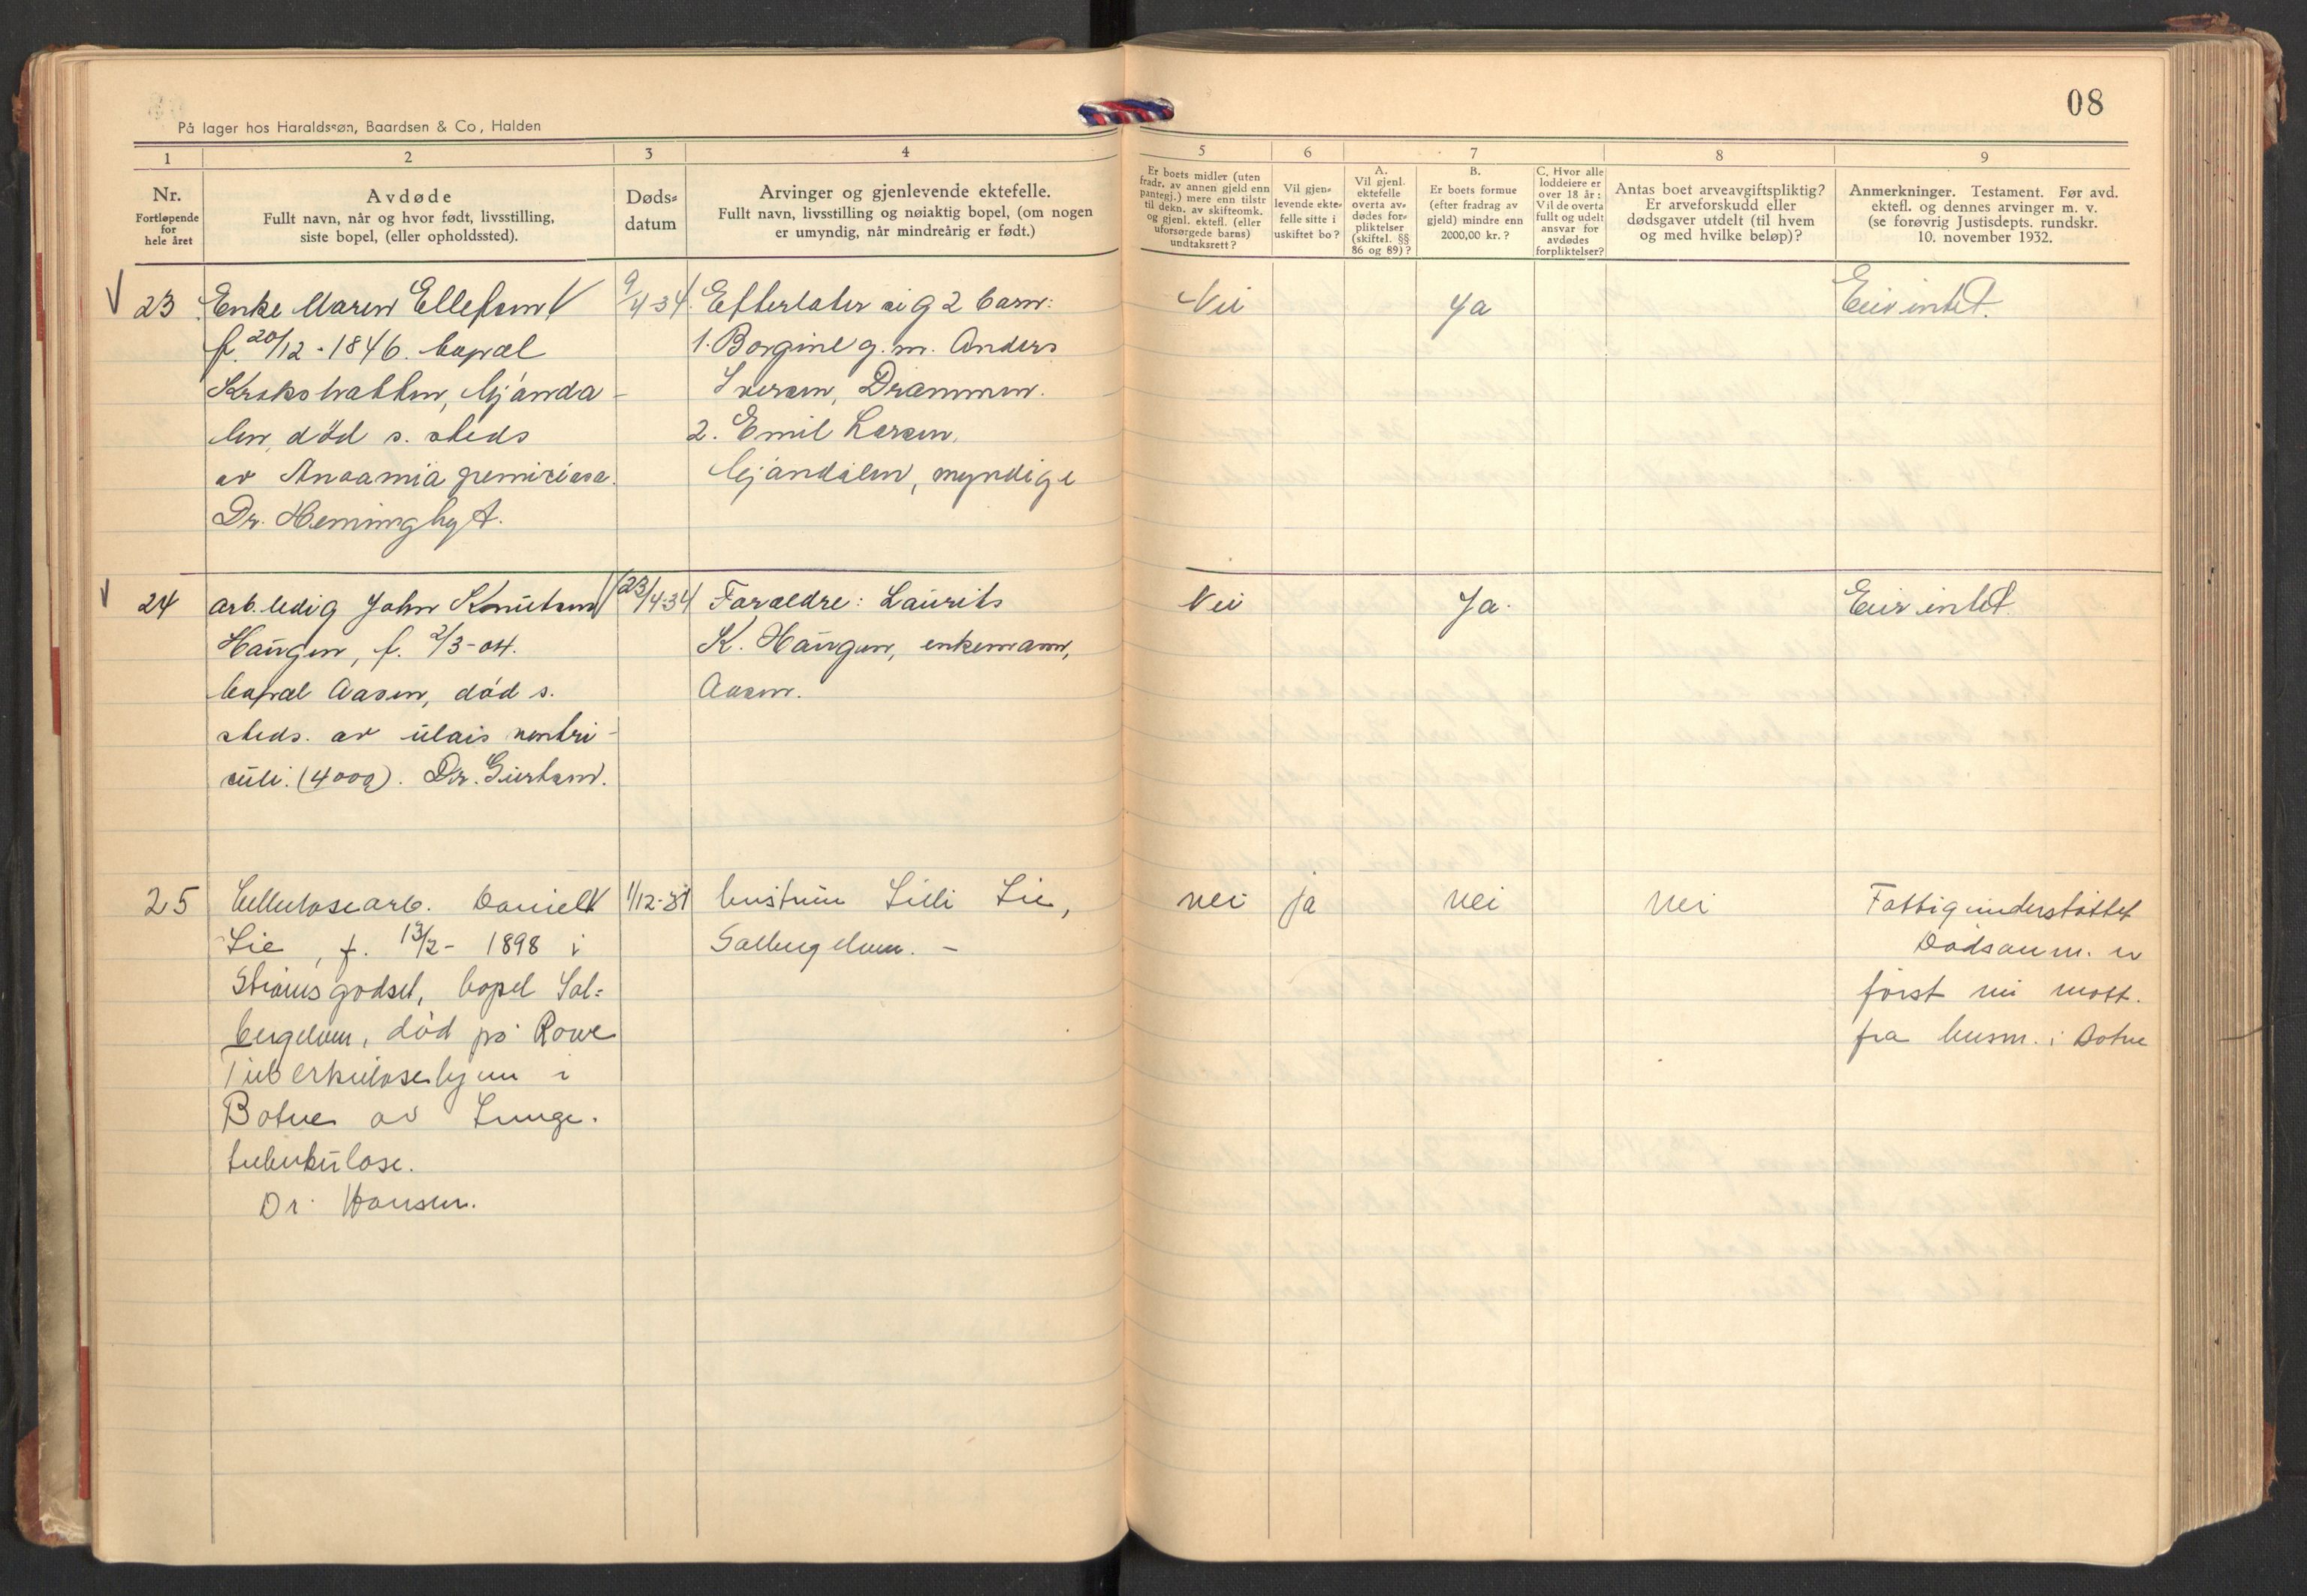 08
På lager hos Haraldssøn, Baardsen & Co, Halden
1 2 3 4 5 6 7 8 9
Nr.
Fortløpende
for
hele året
Avdøde
Fullt navn, når og hvor født, livsstilling,
siste bopel, (eller opholdssted).
Døds=
datum
Arvinger og gjenlevende ektefelle.
Fullt navn, livsstilling og nøiaktig bopel, (om nogen
er umyndig, når mindreårig er født.)
Er boets midler (uten
fradr. av annen gjeld enn
pantegj.) mere enn tilstr
til dekn. av skifteomk.
og gjenl. ektefl. (eller
uforsørgede barns)
undtaksrett?
Vil gjen=
levende ekte=
felle sitte i
uskiftet bo?
A.
Vil gjenl.
ektefelle
overta av=
dødes for=
pliktelser
(skiftel. §§
86 og 89)?
B.
Er boets formue
(efter fradrag av
gjeld) mindre enn
2000,00 kr.?
C. Hvor alle
loddeiere er
over 18 år:
Vil de overta
fullt og udelt
ansvar for
avdødes
forpliktelser?
Antas boet arveavgiftspliktig?
Er arveforskudd eller
dødsgaver utdelt (til hvem
og med hvilke beløp)?
Anmerkninger. Testament. Før avd.
ektefl. og dennes arvinger m. v.
(se forøvrig Justisdepts. rundskr.
10. november 1932.
23
Enke Maren Ellefsen
f. 20/12-1846. bopæl
Krokstratten, Mjønda-
len, död s. steds
av Anaamia perniciosa.
Dr. Heming
9/4-34
Efterlater sig 2 barn:
1. Borgine g. m. Anders
Iversen, Drammen.
2. Emil Larsen,
Mjöndalen, myndige
Nei Ja Eier intet.
24
arb.ledig John Knutsen
Haugen, f. 2/3-04.
bopæl Aasen, död s.
steds. av ulcis ventri-
culi.
23/4-34
Foraeldre: Laurits
K. Haugen, enkemann,
Aasen.
Nei Ja. Eier intet.
25
Cellulosearb. Daniel
Lie, f. 13/2-1898 i
Strømsgodset, bopel Sol=
bergelven, död på Rove
Tuberkulosehjem i
Botne av Lunge.
tuberkulose.
Dr. Hansen.
1/12-31
hustru Lilli Lie,
Solbergelven. -
nei ja nei nei
Fattigunderstöttet
Dødsanm. er
først nu mott.
fra lensm. i Botne